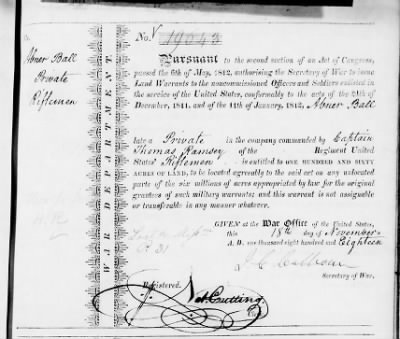 No. 19043
Abner Ball
Private
Riflemen
WAR DEPARTMENT.
Pursuant to the second section of an Act of Congress,
passed the 6th of May, 1812, authorising the Secretary of War to issue
Land Warrants to the noncommissioned Officers and Soldiers enlisted in
the service of the United States, conformably to the acts of the 24th
December, 1811, and of the 11th January, 1812, Abner Ball
late a Private in the company commanded by Captain
Thomas Ramsey of the Regiment United
States' Riflemen is entitled to ONE HUNDRED AND SIXTY
ACRES OF LAND, to be located agreeably to the said act on any unlocated
part of the six millions of acres appropriated by law for the original
grantees of such military warrants; and this warrant is not assignable
or transferable in any manner whatever.
GIVEN at the War Office of the United States,
this 18th day of November
A. D. one thousand eight hundred and Eighteen
J. C. Calhoun
Secretary of War.
Registered.
Nat Cutting